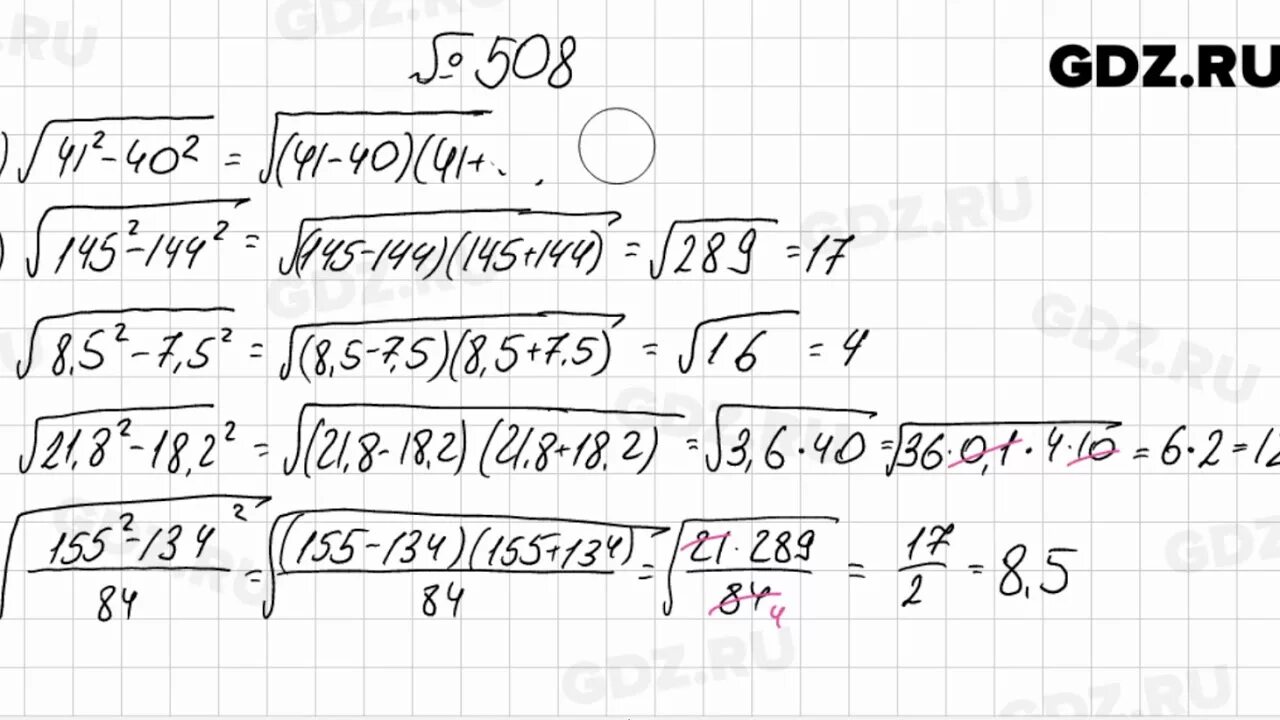 № 508
GDZ.RU
) √(41² - 40²) = √((41-40)(41+
) √(145² - 144²) = √((145-144)(145+144)) = √289 = 17
√(8,5² - 7,5²) = √((8,5-7,5)(8,5+7,5)) = √16 = 4
√(21,8² - 18,2²) = √((21,8-18,2)(21,8+18,2)) = √(3,6·40) = √(36·0,1·4·10) = 6·2 = 12
√((155² - 134²)/84) = √((155-134)(155+134)/84) = √(21·289/84) = 17/2 = 8,5
4
GDZ.RU
GDZ.RU
GDZ.RU
GDZ.RU
GDZ.RU
GDZ.RU